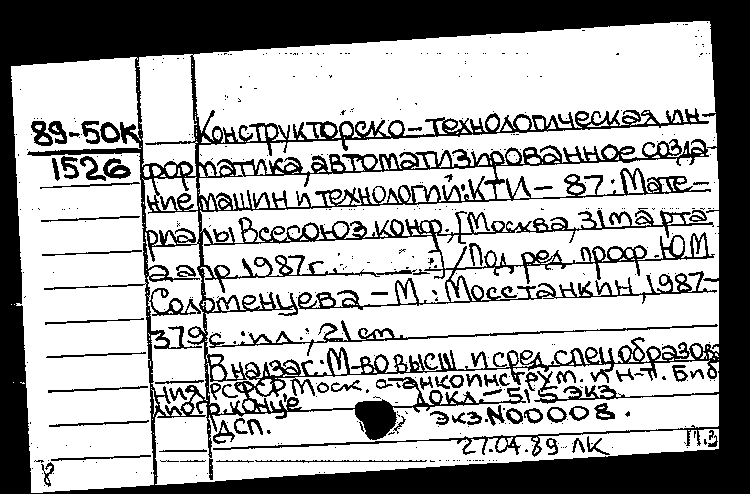 89-50К
1526
Конструкторско-технологическая ин-
форматика, автоматизированное созда-
ние машин и технологий: КТИ - 87: Мате-
риалы Всесоюз. конф., [Москва, 31 марта-
2 апр. 1987г.] / Под ред. проф. Ю.М.
Соломенцева - М.: Мосстанкин, 1987.-
379с.: ил.; 21 см.
В надзаг.: М-во высш. и сред. спец образова
ния РСФСР, Моск. станкоинструм. ин-т. Биб
лиогр. в конце докл. - 515 экз.
ДСП. Экз. N00008.
27.04.89 ЛК П.З
8